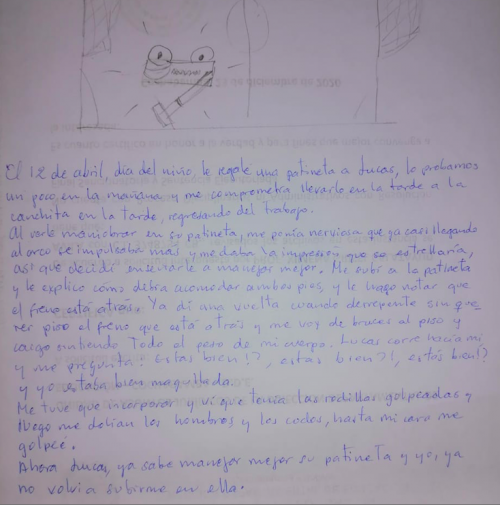 El 12 de abril, día del niño, le regalé una patineta a Lucas, la probamos
un poco, en la mañana y me comprometí a llevarlo en la tarde a la
canchita en la tarde, regresando del trabajo.
Al verlo maniobrar en su patineta, me ponía nerviosa que ya casi llegando
al arco se impulsaba más y me daba la impresión que se estrellaría,
así que decidí enseñarle a manejar mejor. Me subí a la patineta
y le explico cómo debía acomodar ambos pies, y le hago notar que
el freno está atrás. Ya di una vuelta cuando derrepente sin que-
rer piso el freno que está atrás y me voy de bruces al piso y
caigo sintiendo todo el peso de mi cuerpo. Lucas corre hacia mí
y me pregunta: Estás bien!?, estás bien?!, estás bien!?
y yo estaba bien magullada.
Me tuve que incorporar y vi que tenía las rodillas golpeadas y
luego me dolían los hombros y los codos, hasta mi cara me
golpeé.
Ahora Lucas, ya sabe manejar mejor su patineta y yo, ya
no volví a subirme en ella.